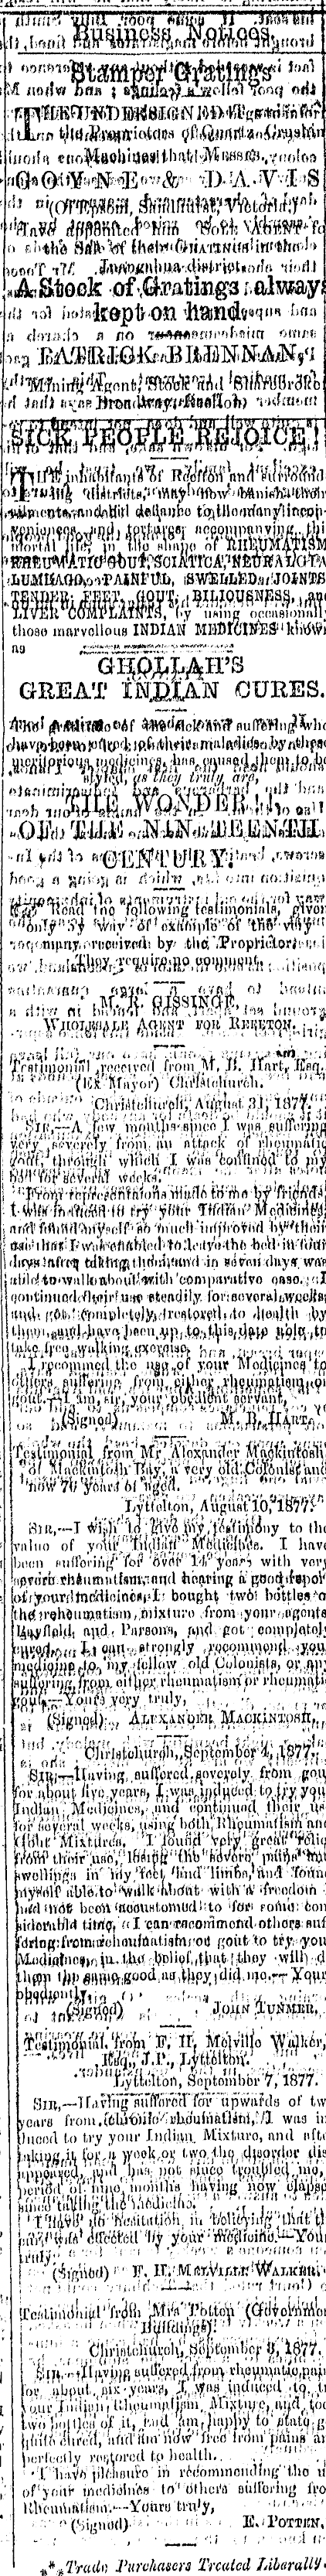 Business Notices.
Stamper Gratings
THE UNDERSIGNED
the Proprietors of Quartz Crushing
Machines that Messrs.
GOYNE & DAVIS
(Of Epsom, Sandhurst, Victoria,)
Have appointed him SOLE AGENT fo
the Sale of their GRATINGS in the
Inangahua district.
A Stock of Gratings always
kept on hand.
PATRICK BRENNAN,
Mining Agent, Stock and Sharebroker
Broadway, Reefton
SICK PEOPLE REJOICE!
THE inhabitants of Reefton and surround
ing districts, may now banish their
ailments and bid defiance to the many incon-
veniences and tortures accompanying th
in the shape of RHEUMATISM
RHEUMATIC GOUT SCIATICA, NEURALGIA
LUMBAGO, PAINFUL, SWELLED JOINTS
TENDER FEET, GOUT, BILIOUSNESS, an
LIVER COMPLAINTS, by using
those marvellous INDIAN MEDICINES know
as
GHOLLAH'S
GREAT INDIAN CURES.
The gratitude of the sick and suffering who
have been cured of their maladies by these
meritorious medicines, has caused them to be
styled, as they truly are,
THE WONDER!!!
OF THE NINETEENTH
CENTURY.
Read the following testimonials, given
only by way of example of the many
received by the Proprietor.
They require no comment.
M. R. GISSING,
WHOLESALE AGENT FOR REEFTON.
Testimonial received from M. B. Hart, Esq.
(Ex Mayor) Christchurch.
Christchurch, August 31, 1877.
SIR,—A few months since I was suffering
very severely from an attack of rheumatic
gout, through which I was confined to my
bed for several weeks.
From representations made to me by friends
I was induced to try your Indian Medicines,
and found myself so much improved by their
use that I was enabled to leave the bed in four
days after taking them, and in seven days was
able to walk about with comparative ease. I
continued their use steadily for several weeks
and got completely restored to health by
them, and have been up to this date able to
take free walking exercise.
I recommend the use of your Medicines to
others suffering from either rheumatism or
gout.—I am, sir, your obedient servant,
(Signed) M. B. HART.
Testimonial from Mr. Alexander Mackintosh
of Mackintosh Bay, a very old Colonist and
now 76 years of aged.
Lyttelton, August 10, 1877.
SIR,—I wish to give my testimony to the
value of your Indian Medicines. I have
been suffering for over 14 years with very
severe rheumatism, and hearing a good repor
of your medicines, I bought two bottles o
the rehoumatism mixture from your agents
Bayfield and Parsons, and got completely
cured. I can strongly recommend you
medicine to my fellow old Colonists, or any
suffering from either rheumatism or rheumatic
gout.—Yours very truly,
(Signed) ALEXANDER MACKINTOSH,
Christchurch, September 4, 1877.
SIR,—Having suffered severely from gou
for about five years, I was induced to try you
Indian Medicines, and continued their us
for several weeks, using both Rheumatism and
Gout Mixtures. I found very great relie
from their use, losing the severe pains and
swellings in my feet and limbs, and foun
myself able to walk about with a freedom I
had not been accustomed to for some con
siderable time. I can recommend others suf
fering from rehoumatism or gout to try you
Medicines, in the belief that they will d
them the same good as they did me.—Your
obediently,
(Signed) JOHN TUNMER.
Testimonial from F. H. Melville Walker,
Esq., J.P., Lyttelton.
Lyttelton, September 7, 1877.
SIR,—Having suffered for upwards of tw
years from chronic rhoumatism, I was in
duced to try your Indian Mixture, and afte
taking it for a week or two the disorder dis
appeared, and has not since troubled me, a
period of nine months having now elapse
since taking the medicine.
I have no hesitation in believing that th
cure was effected by your medicine.—You
truly,
(Signed) F. H. MELVILLE WALKER.
Testimonial from Mrs Potten (Governmen
Buildings).
Christchurch, September 8, 1877.
SIR,—Having suffered from rheumatic pain
for about six years, I was induced to t
your Indian Rheumatism Mixture, and too
two bottles of it, and am happy to state g
quite cured, and am now free from pains an
perfectly restored to health.
I have pleasure in recommending the u
of your medicines to others suffering fro
Rheumatism.—Yours truly,
(Signed) E. POTTEN.
*** Trade Purchasers Treated Liberally.